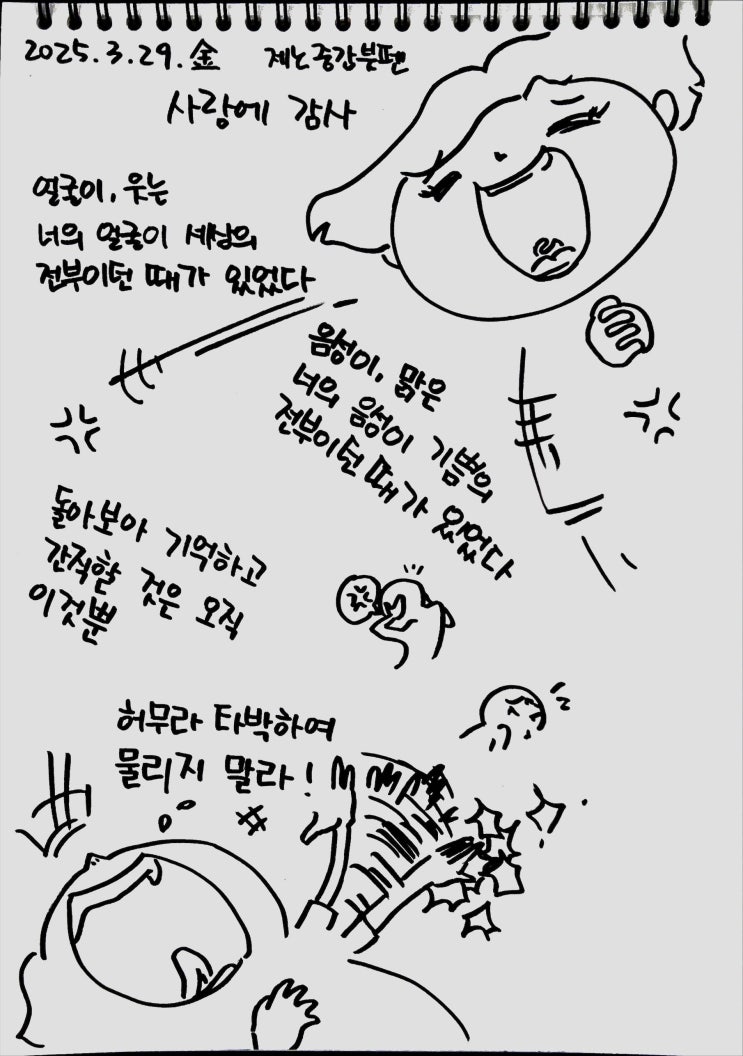 2025.3.29.金 제노중간붓펜
사랑에 감사
얼굴이, 웃는
너의 얼굴이 세상의
전부이던 때가 있었다
음성이, 맑은
너의 음성이 기쁨의
전부이던 때가 있었다
돌아보아 기억하고
간직할 것은 오직
이것뿐
허무라 타박하여
물리지 말라!